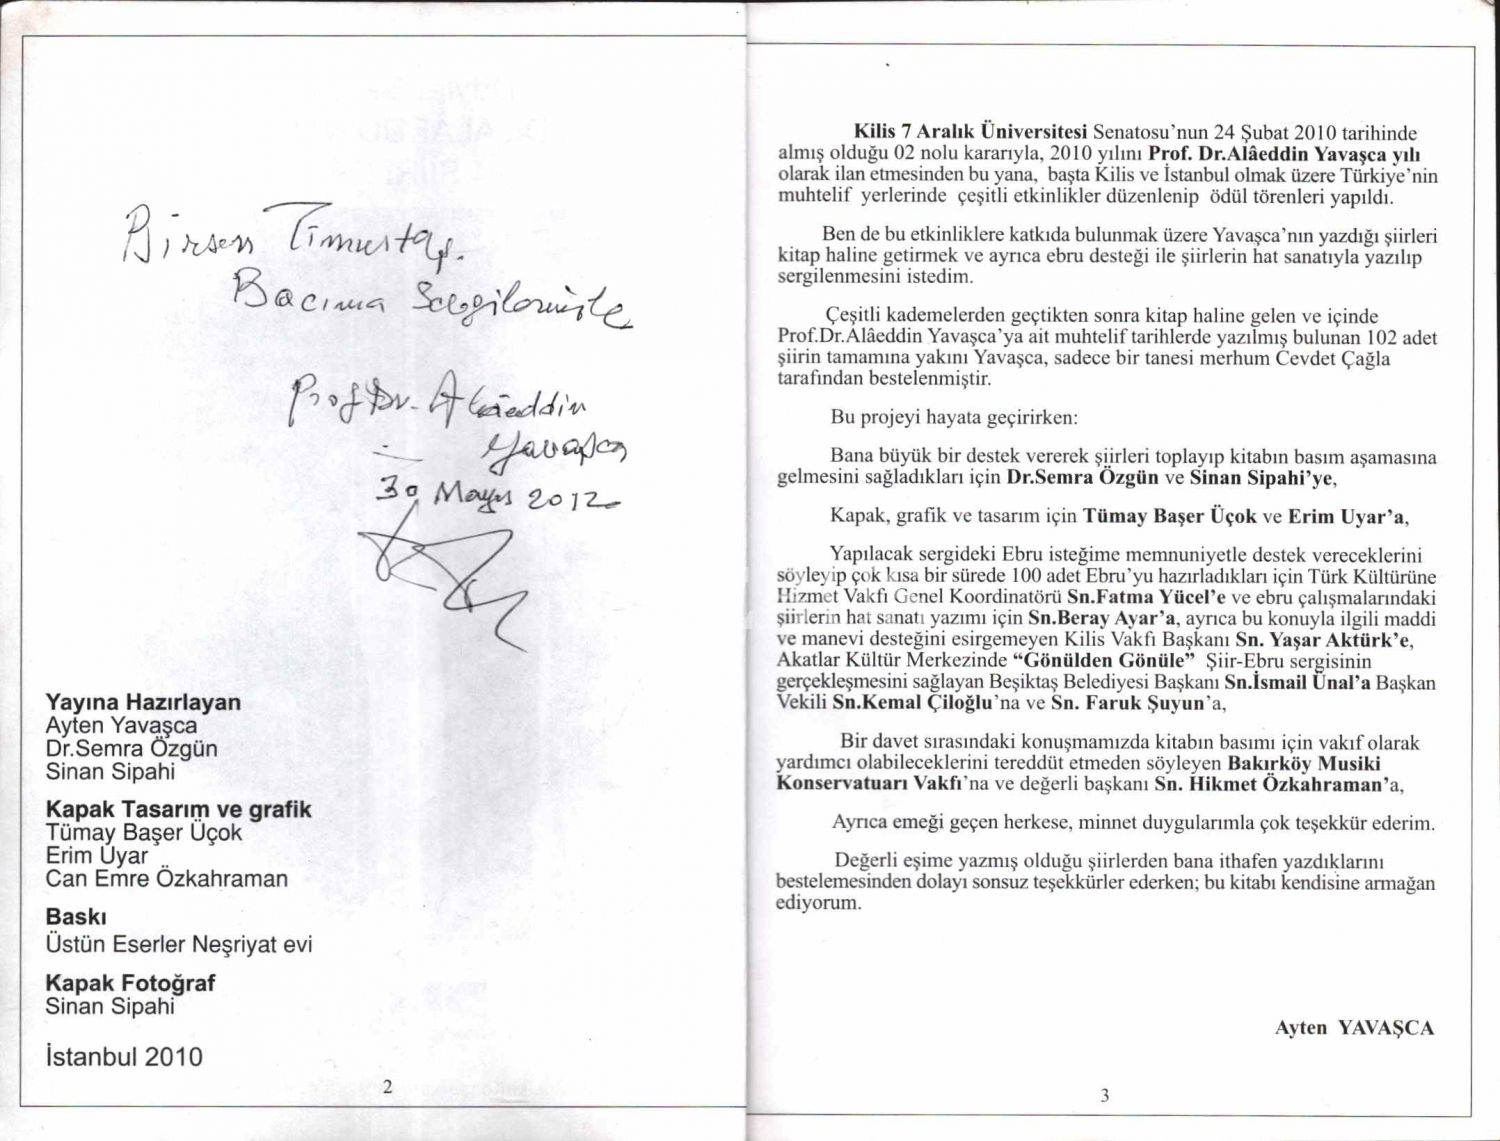 Birsen Timurtaş.
Bacıma Sevgilerimle
Prof Dr. Alâeddin
Yavaşca
30 Mayıs 2012
Yayına Hazırlayan
Ayten Yavaşca
Dr.Semra Özgün
Sinan Sipahi
Kapak Tasarım ve grafik
Tümay Başer Üçok
Erim Uyar
Can Emre Özkahraman
Baskı
Üstün Eserler Neşriyat evi
Kapak Fotoğraf
Sinan Sipahi
İstanbul 2010
2
Kilis 7 Aralık Üniversitesi Senatosu'nun 24 Şubat 2010 tarihinde
almış olduğu 02 nolu kararıyla, 2010 yılını Prof. Dr.Alâeddin Yavaşca yılı
olarak ilan etmesinden bu yana, başta Kilis ve İstanbul olmak üzere Türkiye'nin
muhtelif yerlerinde çeşitli etkinlikler düzenlenip ödül törenleri yapıldı.
Ben de bu etkinliklere katkıda bulunmak üzere Yavaşca'nın yazdığı şiirleri
kitap haline getirmek ve ayrıca ebru desteği ile şiirlerin hat sanatıyla yazılıp
sergilenmesini istedim.
Çeşitli kademelerden geçtikten sonra kitap haline gelen ve içinde
Prof.Dr.Alâeddin Yavaşca'ya ait muhtelif tarihlerde yazılmış bulunan 102 adet
şiirin tamamına yakını Yavaşca, sadece bir tanesi merhum Cevdet Çağla
tarafından bestelenmiştir.
Bu projeyi hayata geçirirken:
Bana büyük bir destek vererek şiirleri toplayıp kitabın basım aşamasına
gelmesini sağladıkları için Dr.Semra Özgün ve Sinan Sipahi'ye,
Kapak, grafik ve tasarım için Tümay Başer Üçok ve Erim Uyar'a,
Yapılacak sergideki Ebru isteğime memnuniyetle destek vereceklerini
söyleyip çok kısa bir sürede 100 adet Ebru'yu hazırladıkları için Türk Kültürüne
Hizmet Vakfı Genel Koordinatörü Sn.Fatma Yücel'e ve ebru çalışmalarındaki
şiirlerin hat sanatı yazımı için Sn.Beray Ayar'a, ayrıca bu konuyla ilgili maddi
ve manevi desteğini esirgemeyen Kilis Vakfı Başkanı Sn. Yaşar Aktürk'e,
Akatlar Kültür Merkezinde “Gönülden Gönüle” Şiir-Ebru sergisinin
gerçekleşmesini sağlayan Beşiktaş Belediyesi Başkanı Sn.İsmail Ünal'a Başkan
Vekili Sn.Kemal Çiloğlu'na ve Sn. Faruk Şuyun'a,
Bir davet sırasındaki konuşmamızda kitabın basımı için vakıf olarak
yardımcı olabileceklerini tereddüt etmeden söyleyen Bakırköy Musiki
Konservatuarı Vakfı'na ve değerli başkanı Sn. Hikmet Özkahraman'a,
Ayrıca emeği geçen herkese, minnet duygularımla çok teşekkür ederim.
Değerli eşime yazmış olduğu şiirlerden bana ithafen yazdıklarını
bestelemesinden dolayı sonsuz teşekkürler ederken; bu kitabı kendisine armağan
ediyorum.
Ayten YAVAŞCA
3